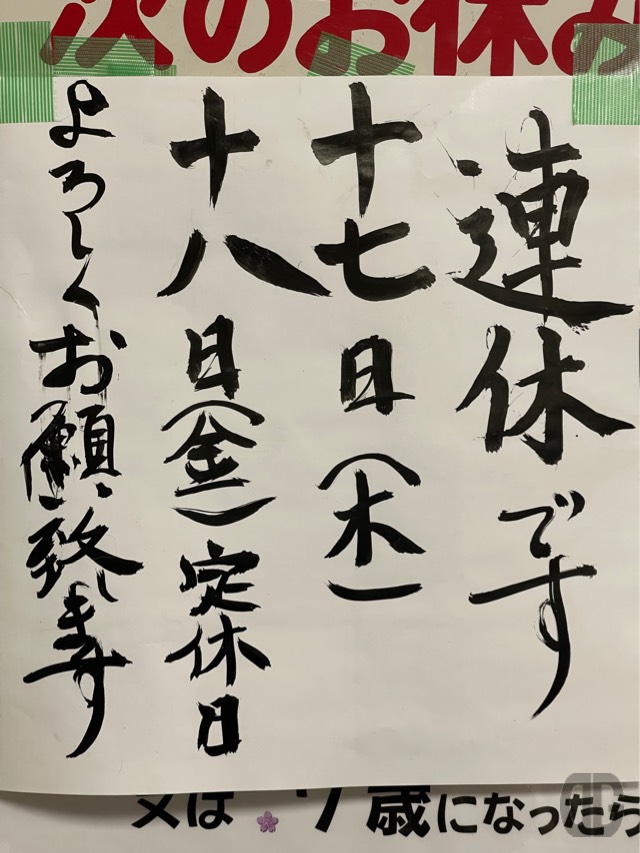 次のお休み
連休です
十七日(木)
十八日(金)定休日
よろしくお願い致します
は 7歳になったら